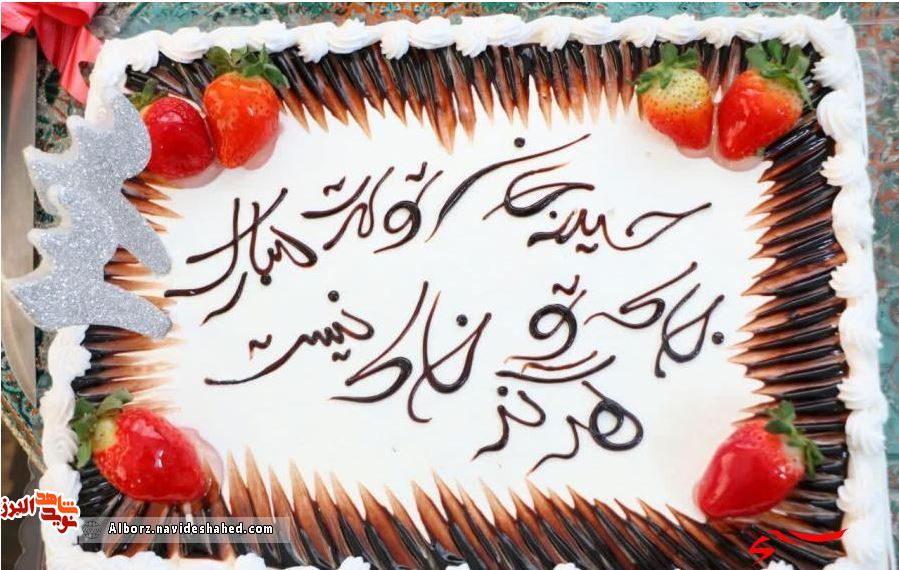 جان تولدت مبارک
تو خاک نیست
هرگز
نوید شاهد البرز
Alborz.navideshahed.com